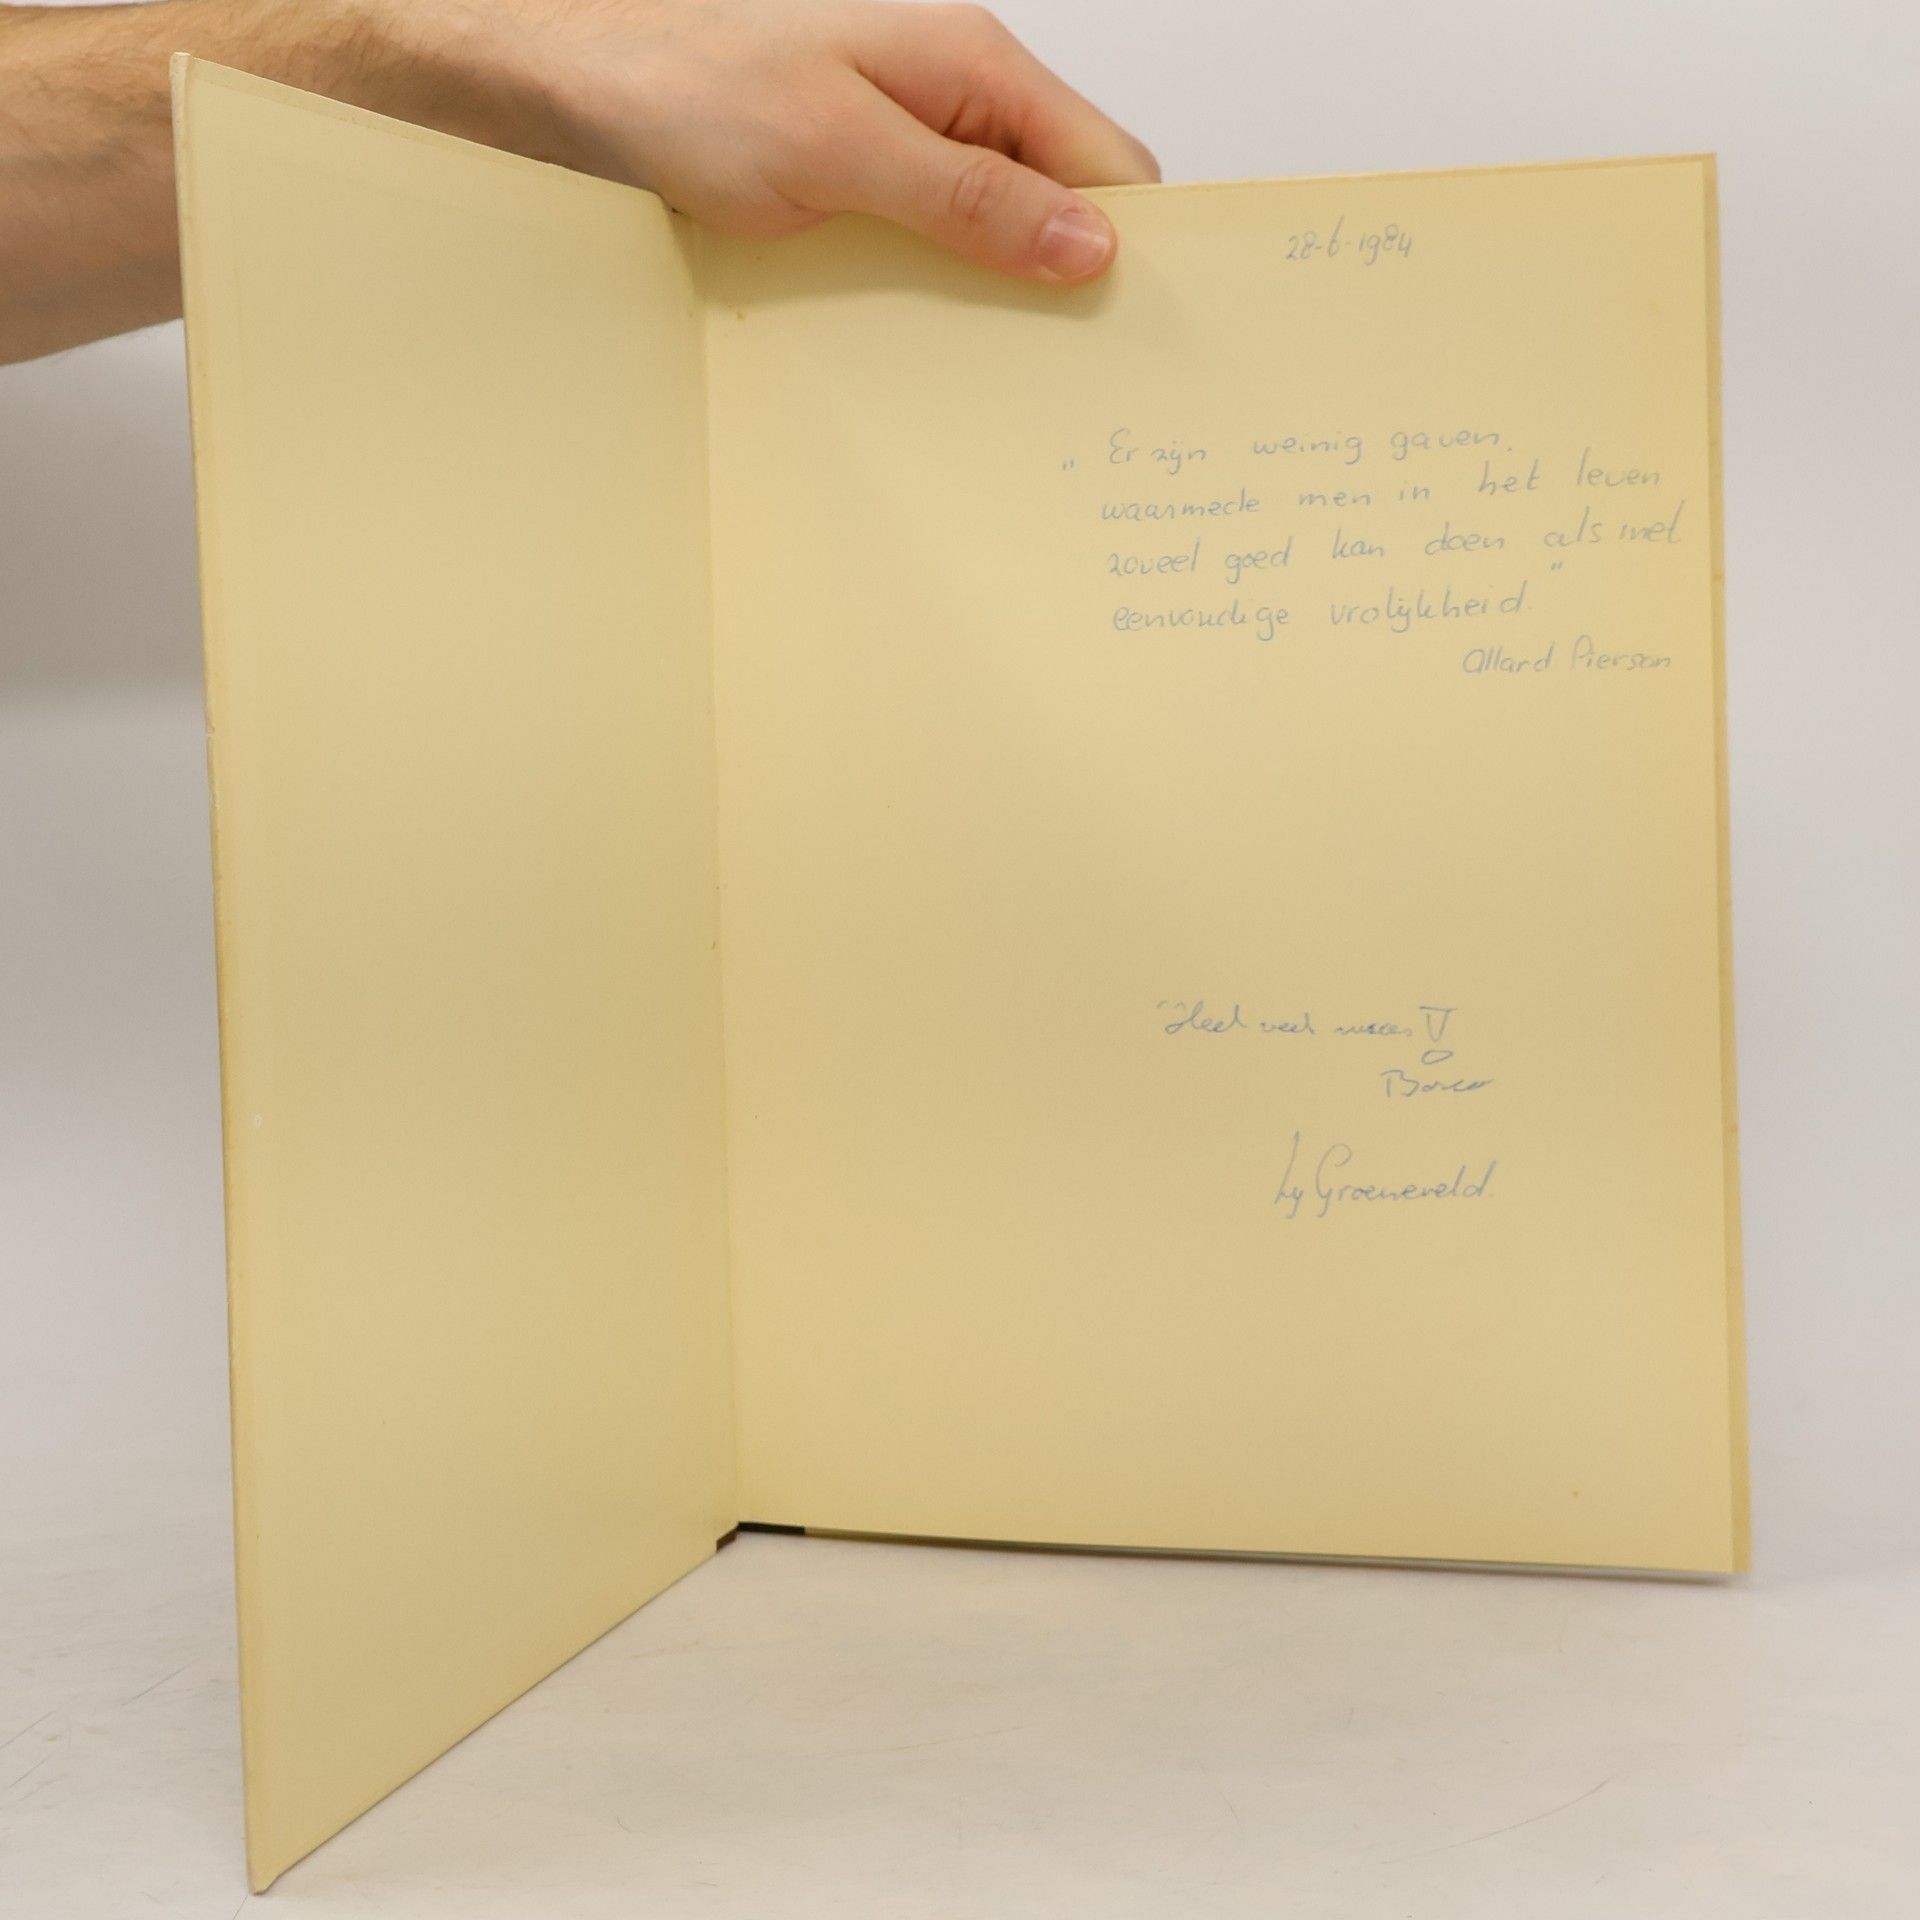 28-6-1984
„ Er zijn weinig gaven,
waarmede men in het leven
zoveel goed kan doen als met
eenvoudige vrolijkheid.”
Allard Pierson
"Heel veel succes
Groeneveld.